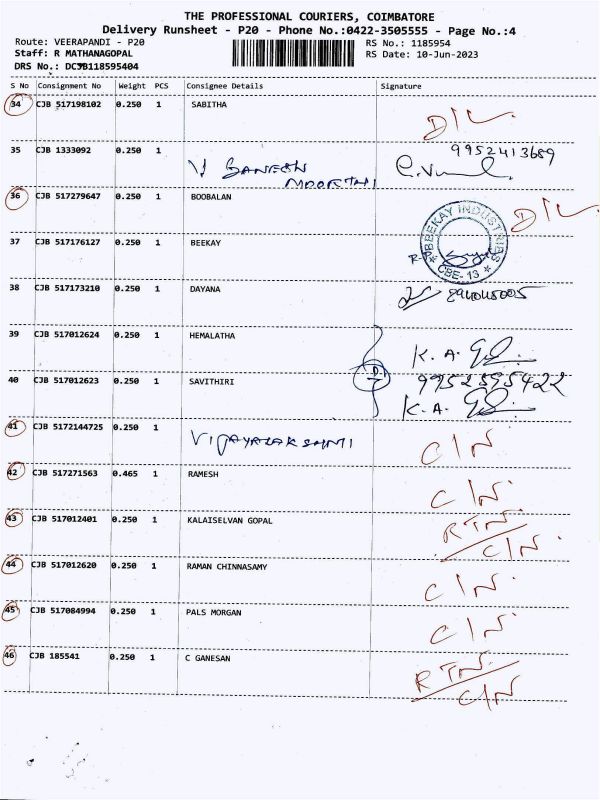 THE PROFESSIONAL COURIERS, COIMBATORE
Delivery Runsheet - P20 - Phone No.:0422-3505555 - Page No.:4
Route: VEERAPANDI - P20
RS No.: 1185954
Staff: R MATHANAGOPAL
RS Date: 10-Jun-2023
DRS No.: DCJB118595404
S No Consignment No Weight PCS Consignee Details Signature
34 CJB 517198102 0.250 1 SABITHA D/L
35 CJB 1333092 0.250 1 9952413689
V GANESH
MOORTHI
36 CJB 517279647 0.250 1 BOOBALAN D/L
37 CJB 517176127 0.250 1 BEEKAY BEEKAY INDUSTRIES CBE-13
38 CJB 517173210 0.250 1 DAYANA
39 CJB 517012624 0.250 1 HEMALATHA K. A.
40 CJB 517012623 0.250 1 SAVITHIRI 9952595422
K. A.
41 CJB 5172144725 0.250 1 VIJAYALAKSHMI C/N
42 CJB 517271563 0.465 1 RAMESH C/N.
43 CJB 517012401 0.250 1 KALAISELVAN GOPAL RTN.
C/N.
44 CJB 517012620 0.250 1 RAMAN CHINNASAMY C/N.
45 CJB 517084994 0.250 1 PALS MORGAN C/N.
46 CJB 185541 0.250 1 C GANESAN RTN.
C/N